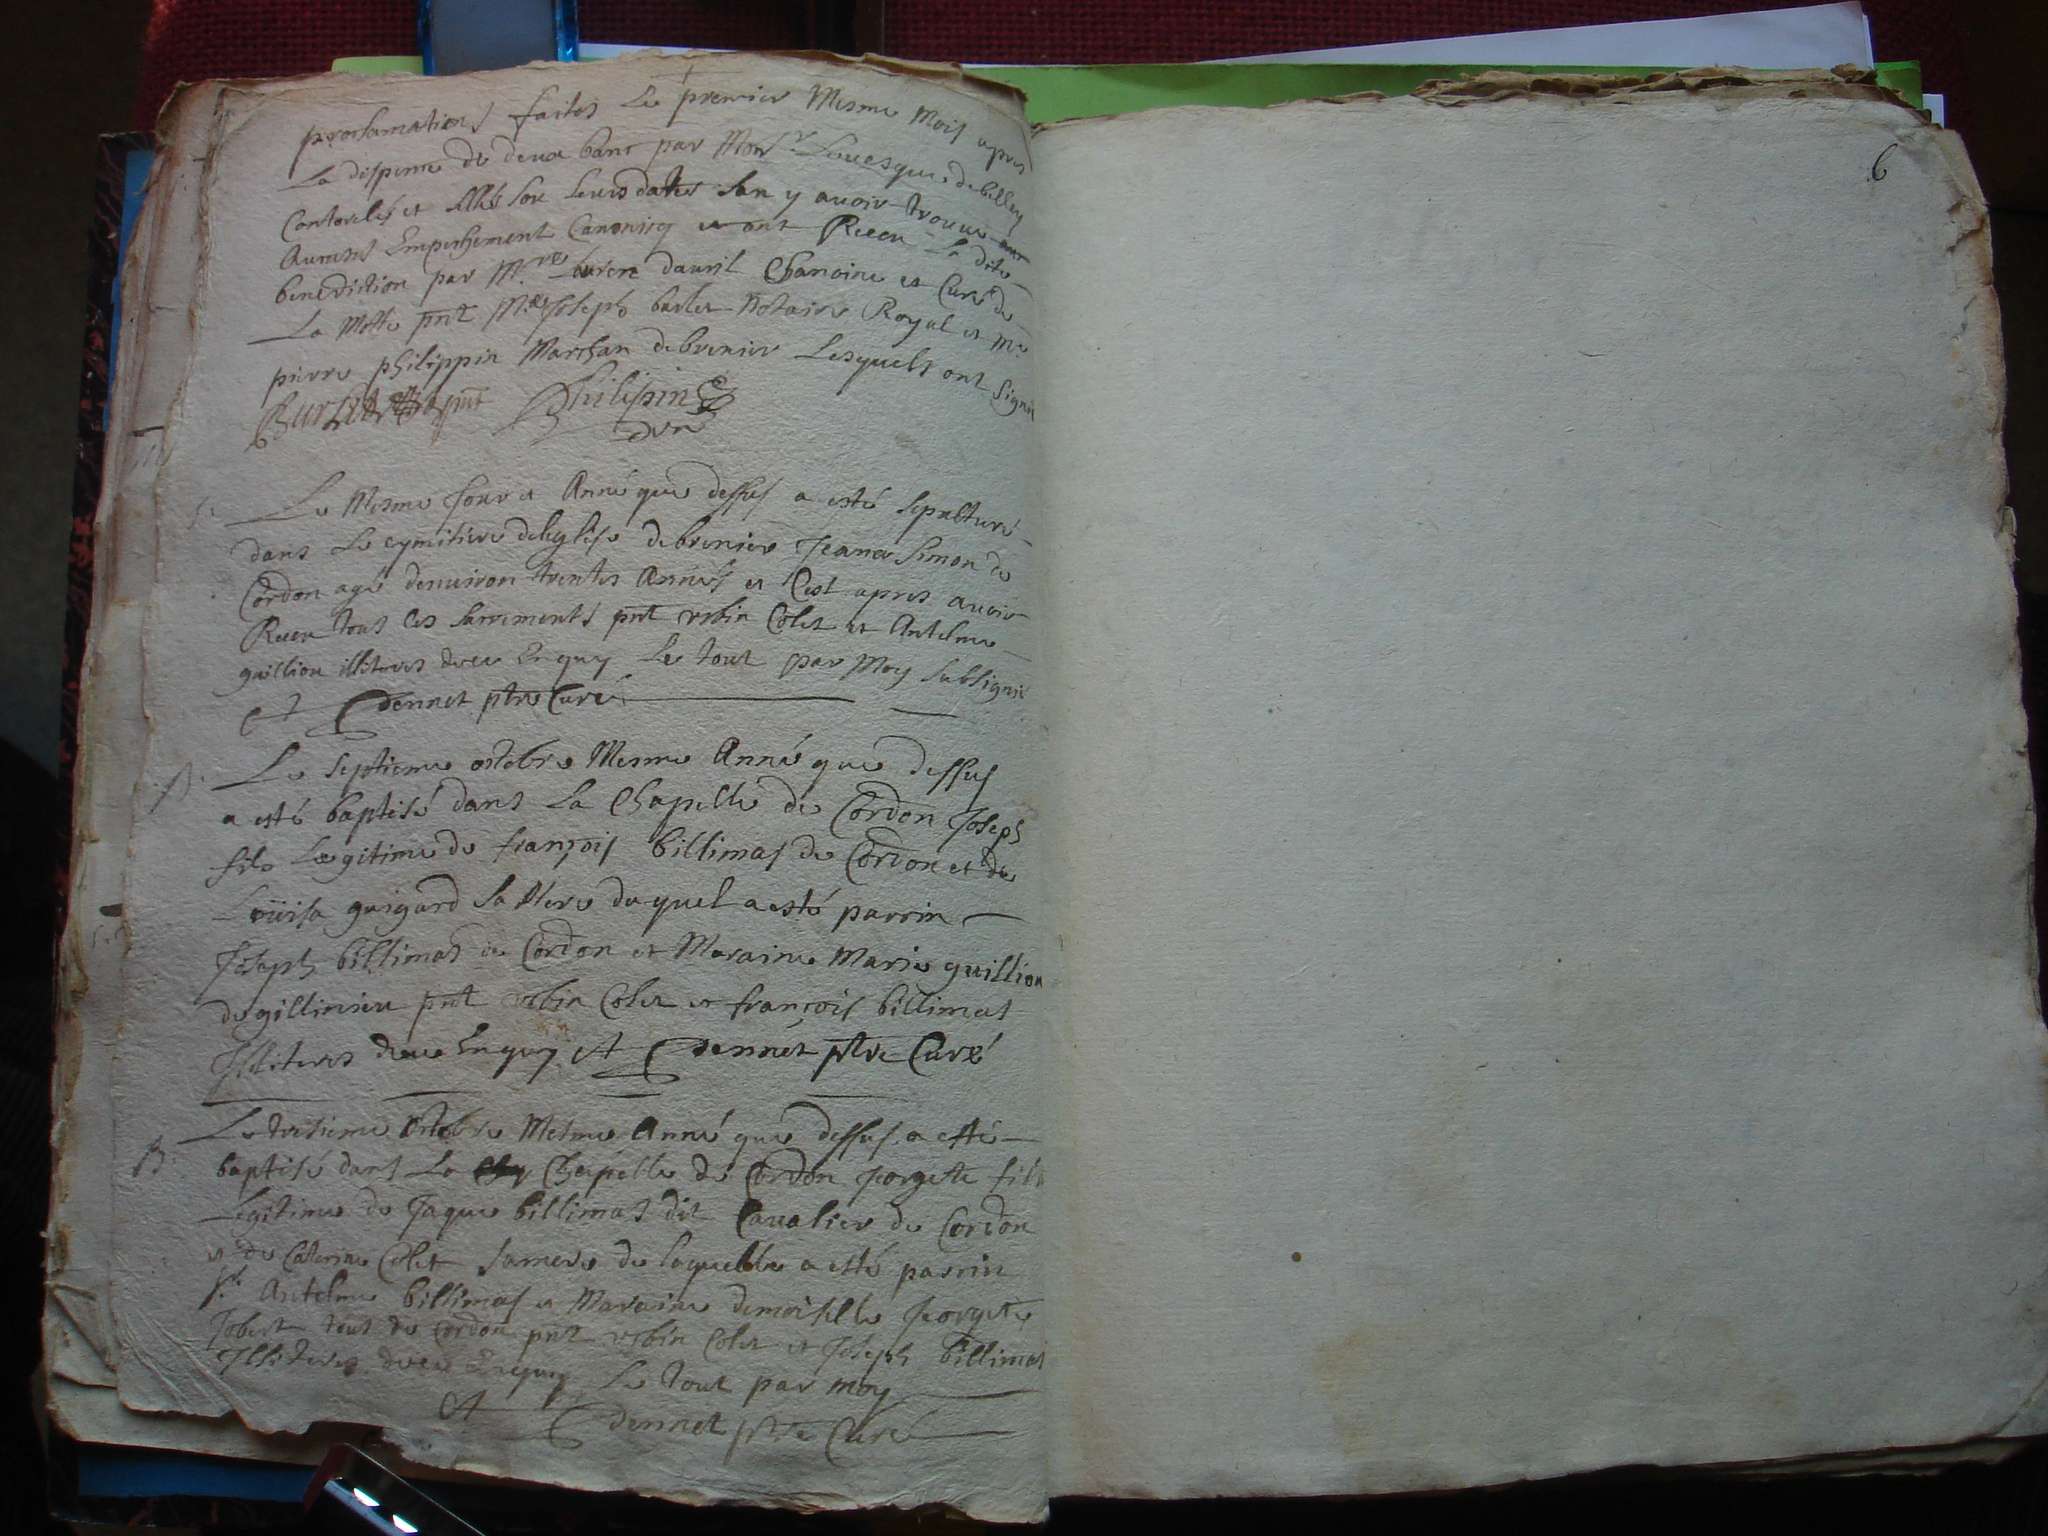 proclamations faites Le premier Mesme Mois apres
La dispence de deux banc par Monsr Leuesque de belley
et sou leurs dates san y auoir trouué
Aucuns Empechement Canonicq et ont Receu La dite
benediction par Mre dauril Chanoine et Curé de
La Motte pnt Mre Joseph barlet Notaire Royal et Me
pierre philippin Marchan de brenier Lesquels ont signé
pnt Philippin
S. Le Mesme Jour et Année que dessus a esté sepulturé
dans Le cymitiere de leglise de brenier Jeane Simon de
Cordon agé denuiron trentes Années et Cest apres auoir
Receu tous Ces Sacrements pnt vrbin Colet et Antelme
guillion illiteres deue Enquy Le tout par Moy subsigné
Et dennet ptre Curé
B. Le septieme octobre Mesme Année que dessus
a esté baptisé dans La Chapelle de Cordon Joseph
fils Legitime de françois billimas de Cordon et de
Loüisa guigard sa Mere duquel a esté parrin
Joseph billimas de Cordon et Maraine Marie guillion
de gillinieu pnt vrbin Colet et françois billimas
Illiteres deue Enquy Et dennet ptre Curé
B. Le tresieme octobre Mesme Année que dessus a esté
baptisé dans La Chapelle de Cordon Jorgette fille
Legitime de Jaque billimas dit Caualier de Cordon
et de Catterine Colet sa mere de laquelle a esté parrin
Sr Antelme billimas et Maraine demoiselle Jorgette
Jobert tous de Cordon pnt vrbin Colet et Joseph billimas
Illiteres deue Enquy Le tout par moy
Et dennet ptre Curé
6